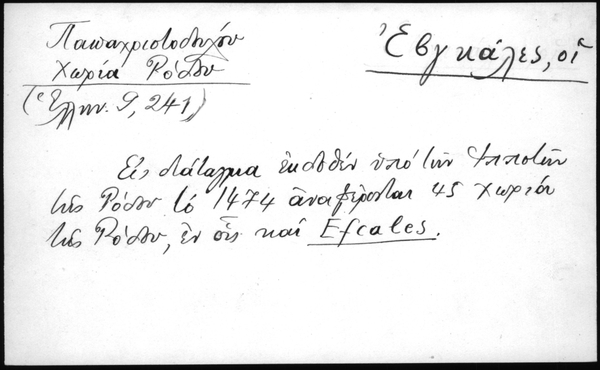 Παπαχριστοδούλου
Χωρία Ρόδου
(Ἑλλην. 9, 241)
Ἐβγκάλες, οἱ
Εἰς διάταγμα ἐκδοθὲν ὑπὸ τῶν Ἱπποτῶν
τῆς Ρόδου τὸ 1474 ἀναφέρονται 45 χωριὰ
τῆς Ρόδου, ἐν οἷς καὶ Efcales.